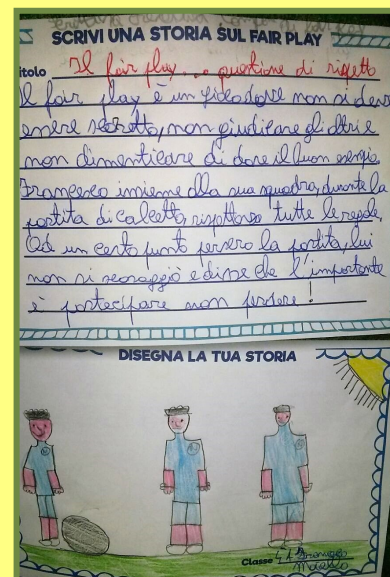 SCRIVI UNA STORIA SUL FAIR PLAY
itolo Il fair play... questione di rispetto
Il fair play è un gioco dove non si deve
essere scorretto, non giudicare gli altri e
non dimenticare di dare il buon esempio
Francesco insieme alla sua squadra, durante la
partita di calcetto, rispettava tutte le regole.
Ad un certo punto persero la partita, lui
non si scoraggiò e disse che l'importante
è partecipare non perdere!
DISEGNA LA TUA STORIA
Classe